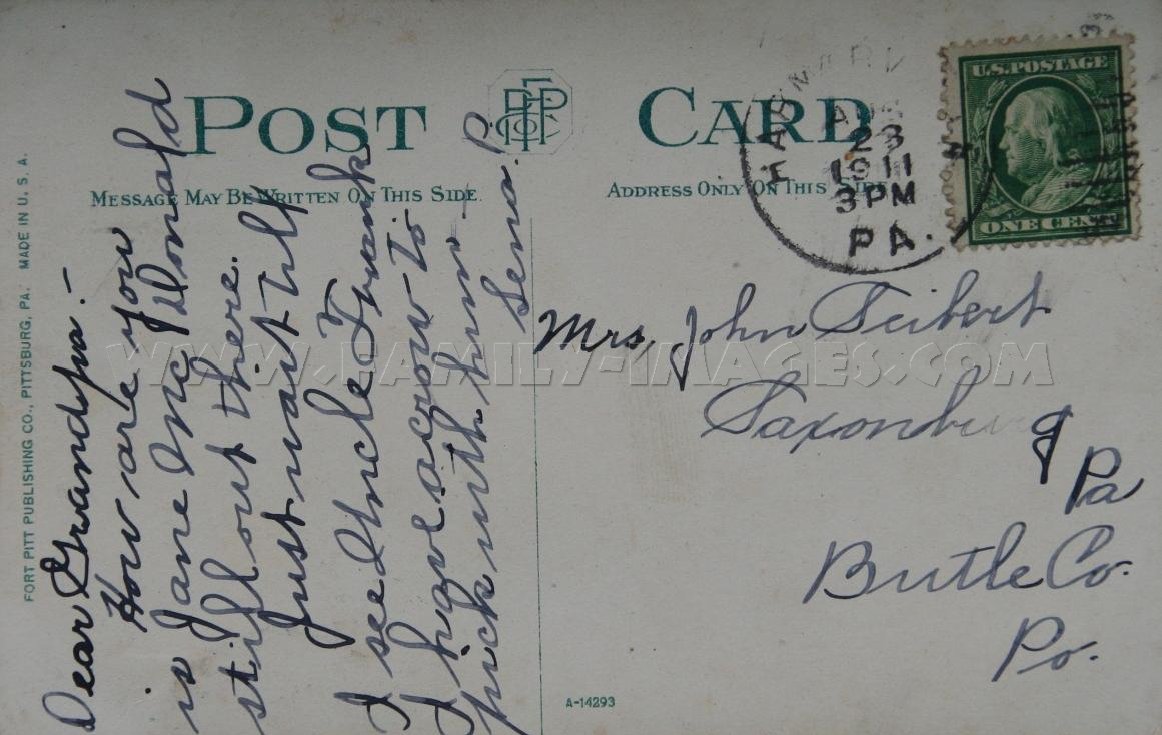 FORT PITT PUBLISHING CO., PITTSBURG, PA. MADE IN U. S. A.
POST CARD
MESSAGE MAY BE WRITTEN ON THIS SIDE
ADDRESS ONLY ON THIS SIDE
23
1911
3PM
PA.
U.S. POSTAGE
ONE CENT
Dear Grandpa:-
How are you
is Jane Mc Donald
still out there.
Just wait till
I see Uncle Frank
I have a crow to
pick with him -
Lena.
Mrs, John Seibert
Saxonburg
Pa
Butle Co.
Pa.
A-14293
WWW.FAMILY-IMAGES.COM